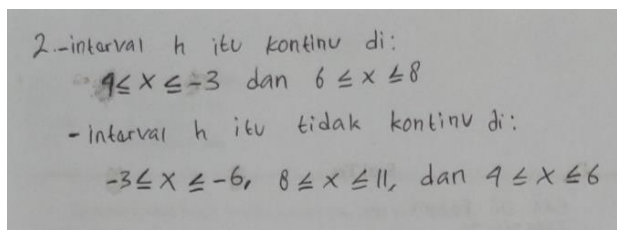 2.-interval h itu kontinu di:
4 ≤ x ≤ -3 dan 6 ≤ x ≤ 8
- interval h itu tidak kontinu di:
-3 ≤ x ≤ -6, 8 ≤ x ≤ 11, dan 4 ≤ x ≤ 6